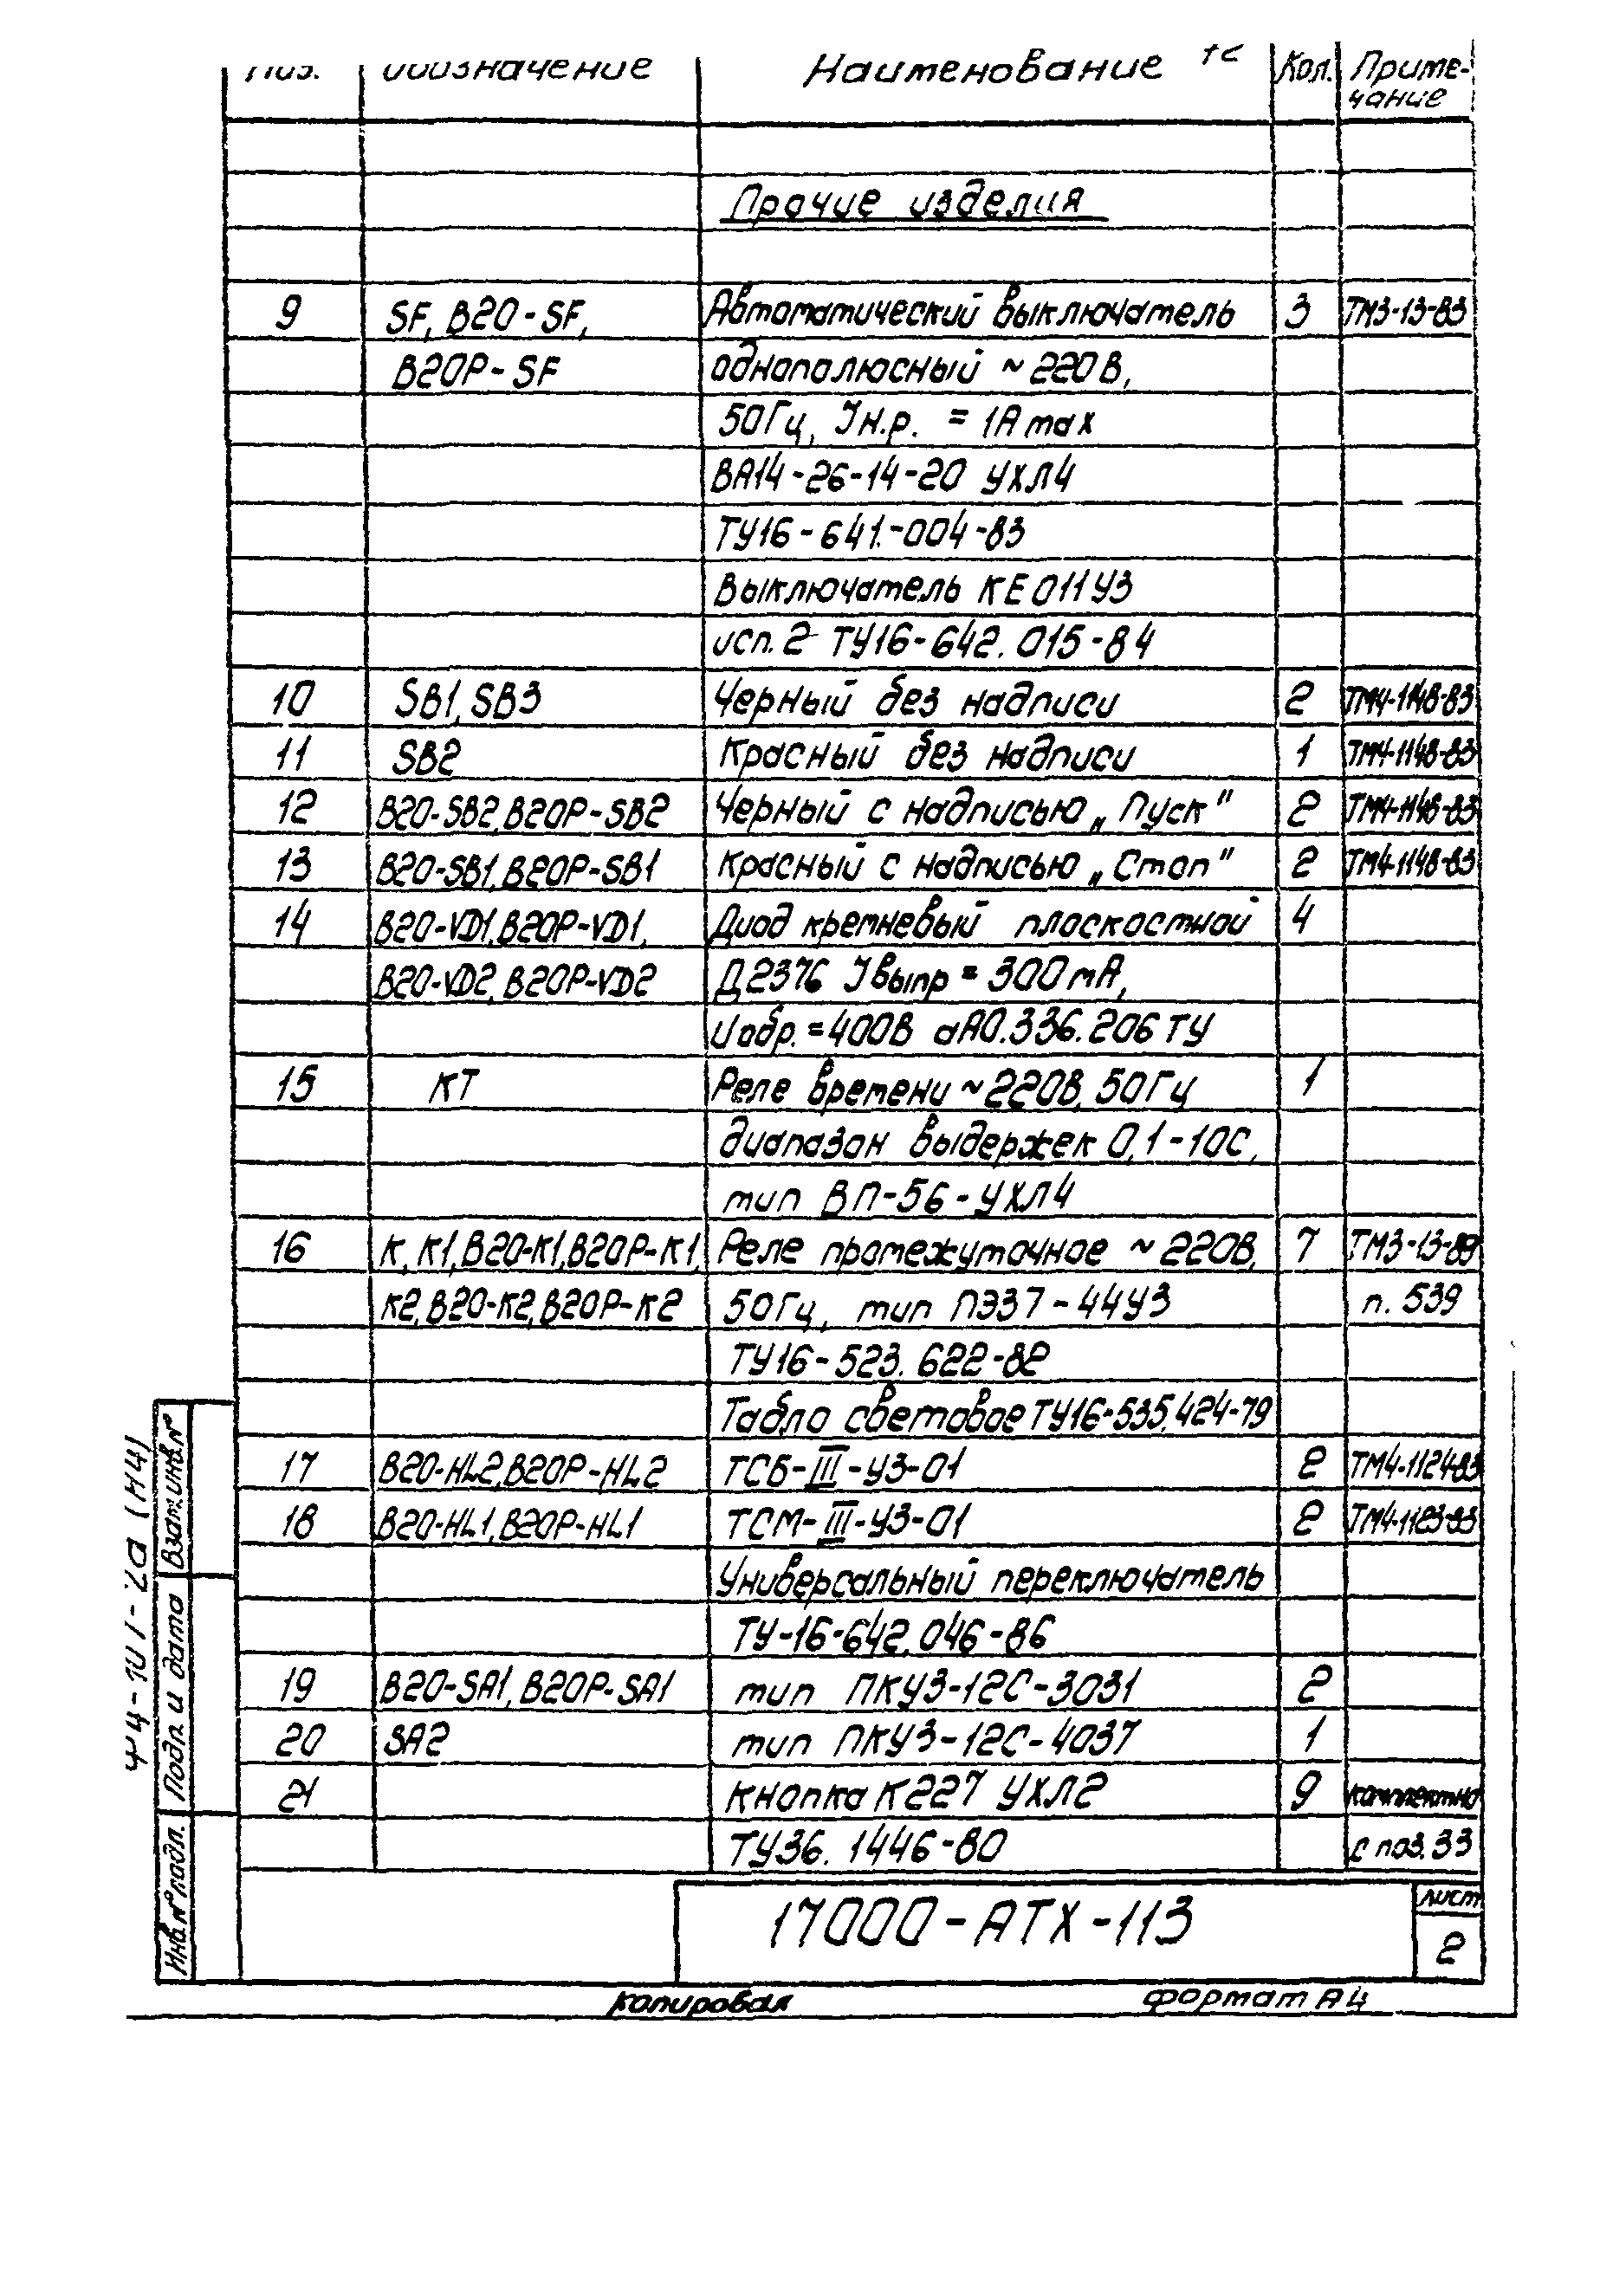 Поз. Обозначение Наименование Кол. Приме-
чание
Прочие изделия
9 SF, В20-SF, Автоматический выключатель 3 ТМ3-13-83
В20Р-SF однополюсный ~ 220В,
50Гц, Iн.р. = 1А max
ВА14-26-14-20 УХЛ4
ТУ16-641.-004-83
Выключатель КЕ 011 У3
исп. 2 ТУ16-642.015-84
10 SB1, SB3 Черный без надписи 2 ТМ4-1148-83
11 SB2 Красный без надписи 1 ТМ4-1148-83
12 В20-SB2, В20Р-SB2 Черный с надписью „Пуск" 2 ТМ4-1148-83
13 В20-SB1, В20Р-SB1 Красный с надписью „Стоп" 2 ТМ4-1148-83
14 В20-VD1, В20Р-VD1, Диод кремневый плоскостной 4
В20-VD2, В20Р-VD2 Д237б Iвыпр = 300 mА,
Uобр. = 400В аА0.336.206 ТУ
15 КТ Реле времени ~ 220В, 50Гц 1
диапазон выдержек 0,1-10С,
тип ВЛ-56-УХЛ4
16 К, К1, В20-К1, В20Р-К1, Реле промежуточное ~ 220В, 7 ТМ3-13-89
К2, В20-К2, В20Р-К2 50Гц, тип ПЭ37-44У3 п. 539
ТУ16-523.622-82
Табло световое ТУ16-535.424-79
17 В20-HL2, В20Р-HL2 ТСБ-III-У3-01 2 ТМ4-1124-83
18 В20-HL1, В20Р-HL1 ТСМ-III-У3-01 2 ТМ4-1123-83
Универсальный переключатель
ТУ-16-642.046-86
19 В20-SA1, В20Р-SA1 тип ПКУ3-12С-3031 2
20 SA2 тип ПКУ3-12С-4037 1
21 Кнопка К227 УХЛ2 9 комплектно
ТУ36.1446-80 с поз. 33
17000-АТХ-113
лист
2
Копировал формат А4
Ф4-10/-2а (Н4)
Взам. инв. №
Подп. и дата
Инв. № подл.